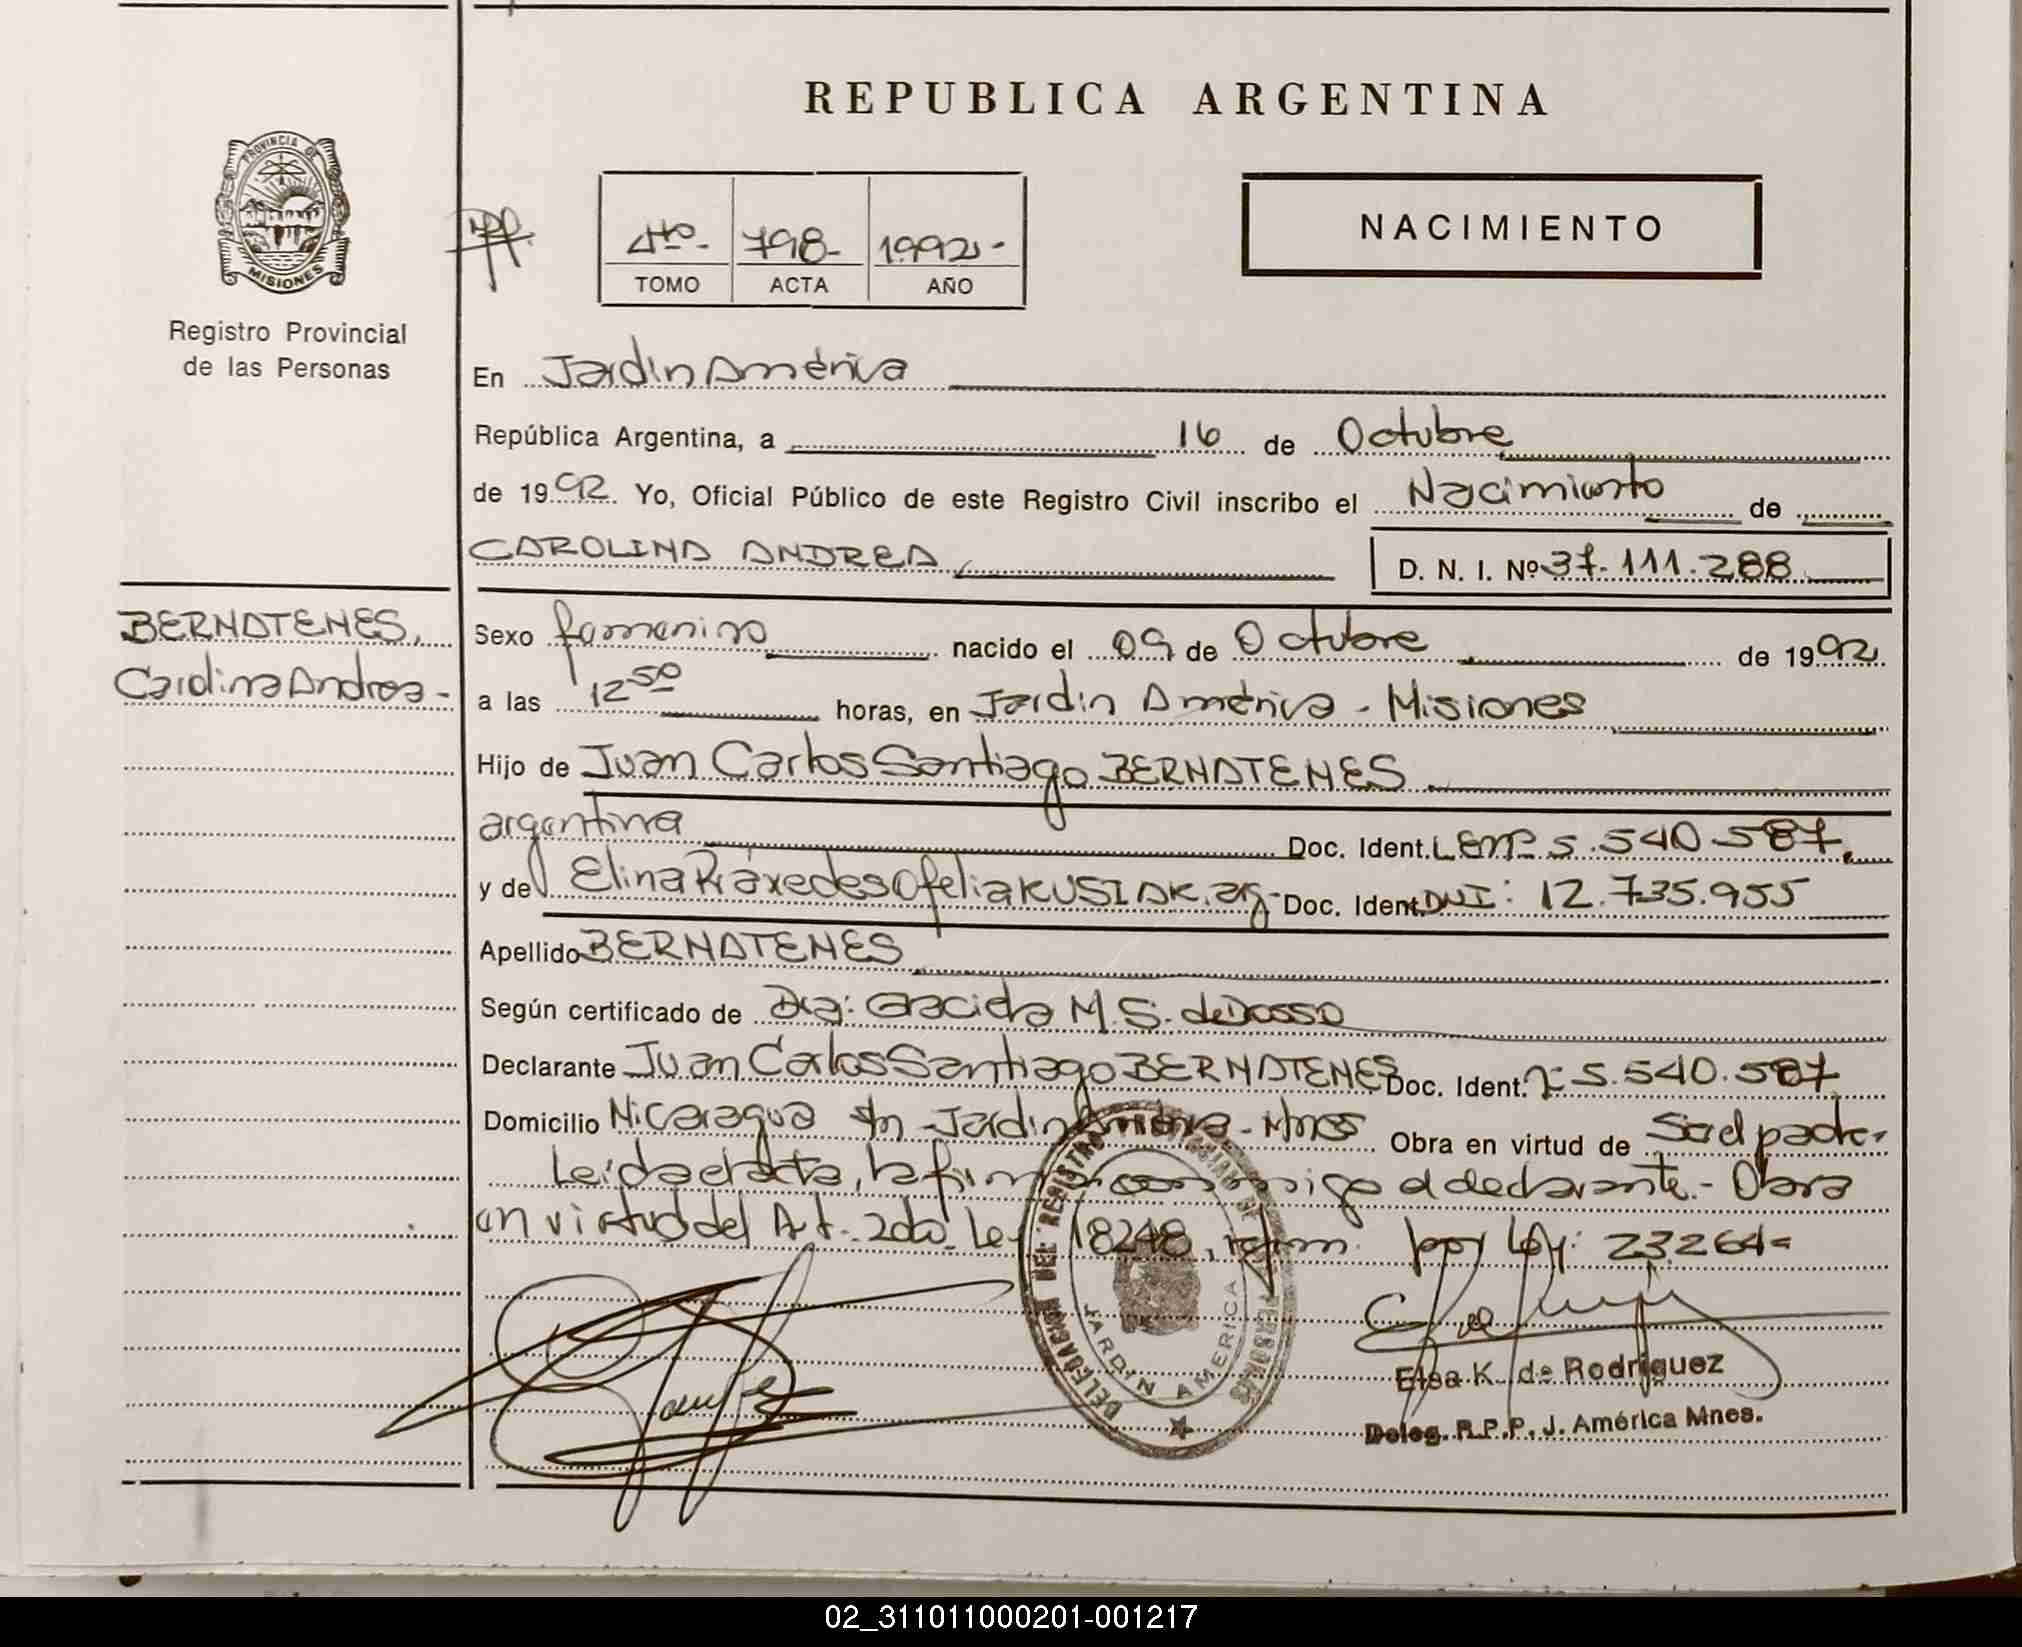 REPUBLICA ARGENTINA
PROVINCIA DE
MISIONES
Registro Provincial
de las Personas
4to.- 798- 1992.-
TOMO ACTA AÑO
NACIMIENTO
En Jardín América
República Argentina, a 16 de Octubre
de 1992. Yo, Oficial Público de este Registro Civil inscribo el Nacimiento de
CAROLINA ANDREA D. N. I. Nº 37.111.288
BERNATENES,
Carolina Andrea-
Sexo femenino nacido el 09 de Octubre de 1992
a las 12 50 horas, en Jardín América - Misiones
Hijo de Juan Carlos Santiago BERNATENES
argentina Doc. Ident. LENº 5.540.587.
y de Elina Práxedes Ofelia KUSIAK. arg- Doc. Ident. DNI: 12.735.955
Apellido BERNATENES
Según certificado de Dra: Graciela M. S. de Dosso
Declarante Juan Carlos Santiago BERNATENES Doc. Ident. 5.540.587
Domicilio Nicaragua s/n Jardín América - Mnes Obra en virtud de Ser el padre.
Leída el acta, la firma conmigo el declarante.- Obra
en virtud del Art. 2do. Ley 18248, reform. por Ley: 23.264=
DELEGACION DEL REGISTRO PROVINCIAL DE LAS PERSONAS
JARDIN AMERICA
Elsa K. de Rodríguez
Deleg. R.P.P. J. América Mnes.
02_311011000201-001217